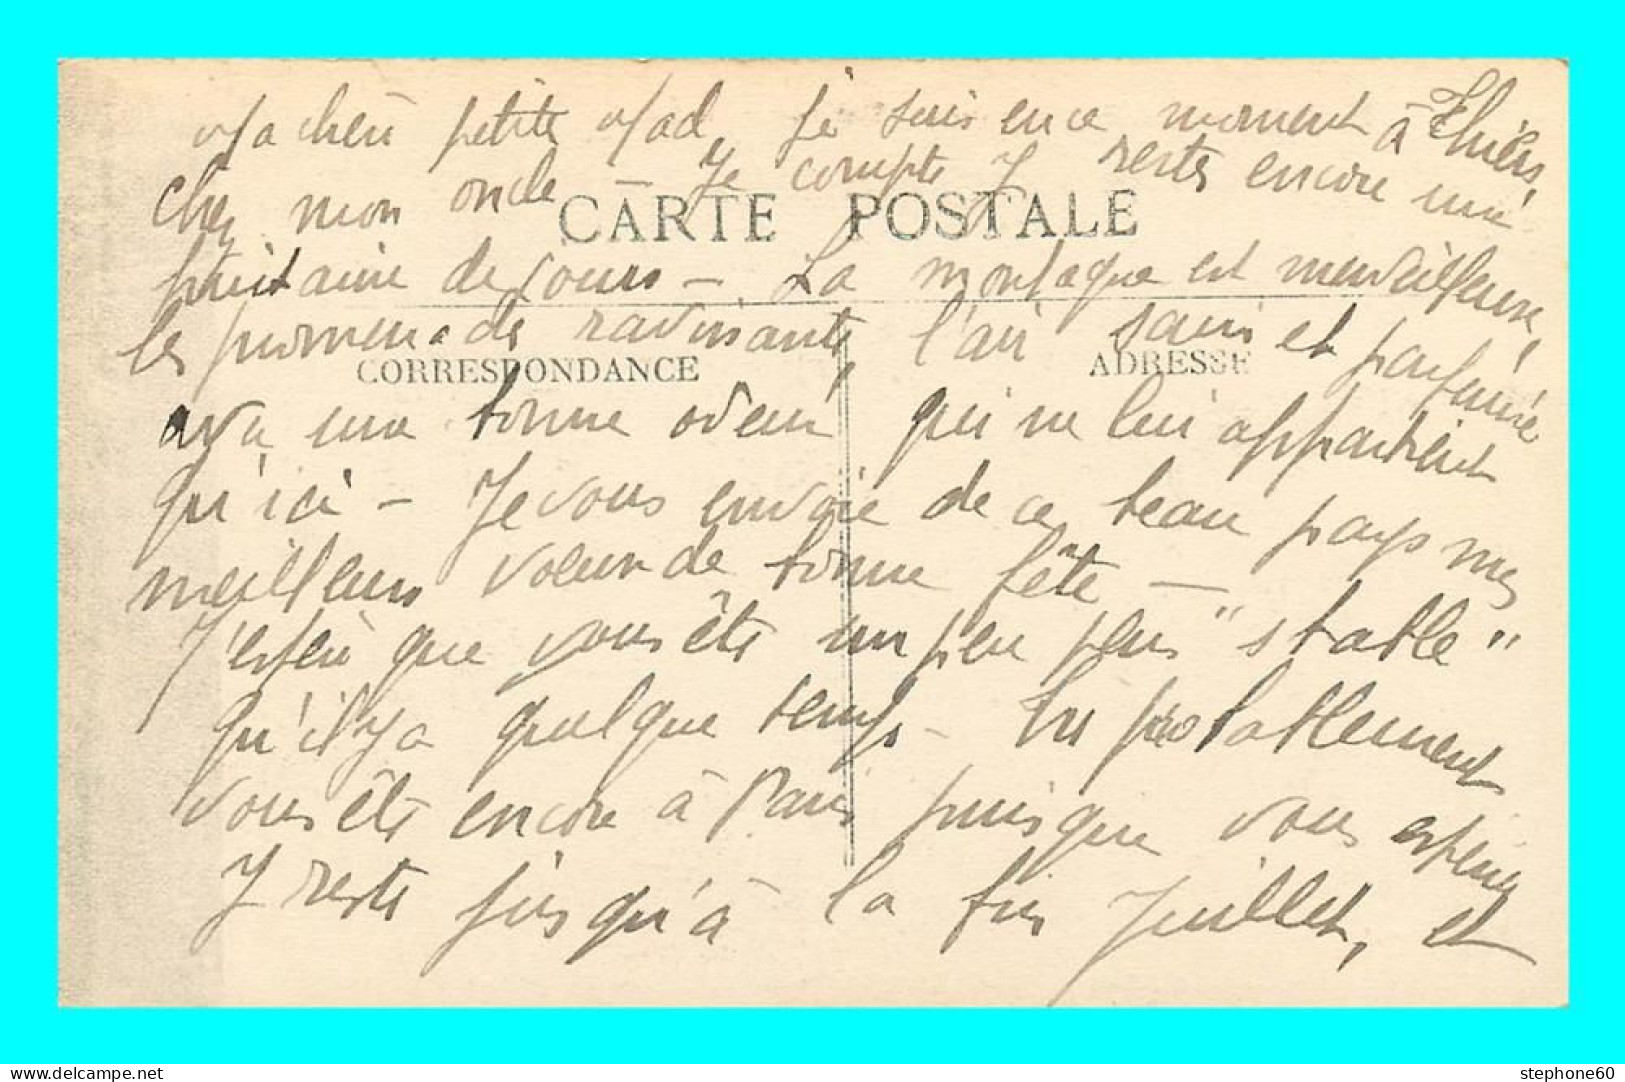 Ma chère petite Mad, je suis en ce moment à Thiers,
chez mon oncle - Je compte y rester encore une
CARTE POSTALE
huitaine de jours - La montagne est merveilleuse,
les promenades ravissantes, l'air sain et parfumé
CORRESPONDANCE
ADRESSE
a une bonne odeur qui ne lui appartient
qu'ici - Je vous envoie de ce beau pays mes
meilleurs voeux de bonne fête -
J'espère que vous êtes un peu plus "stable"
qu'il y a quelque temps - probablement
vous êtes encore à Paris puisque vous espériez
y rester jusqu'à la fin Juillet, et
stephone60
www.delcampe.net